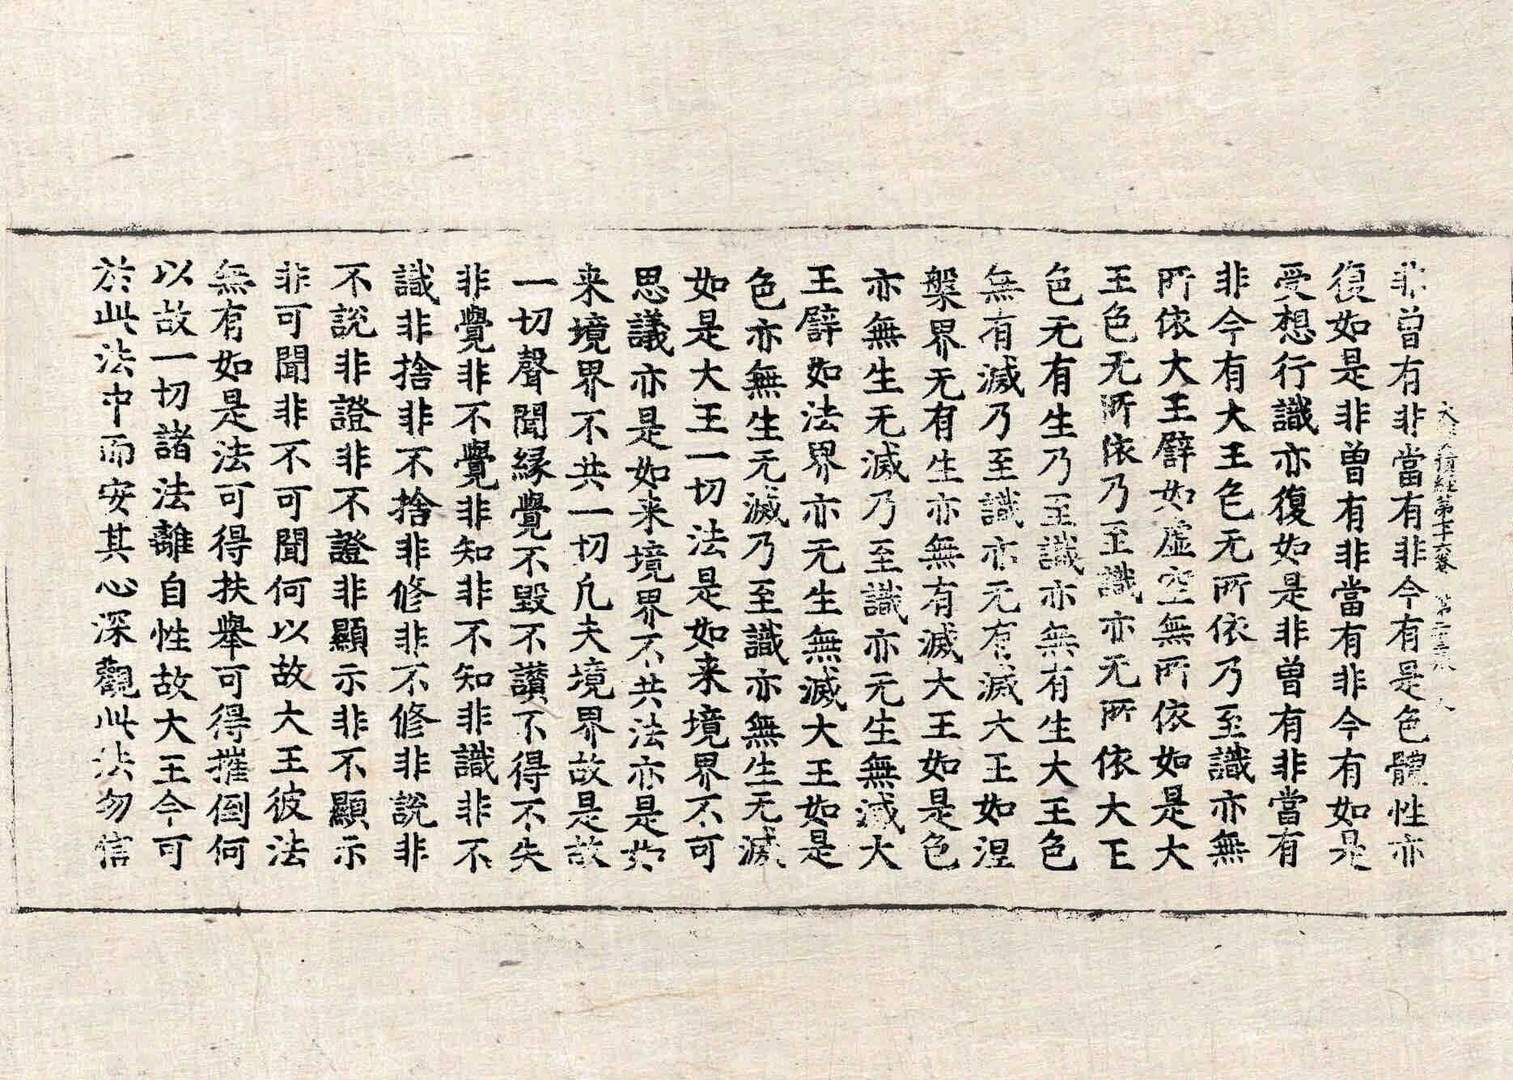 非曾有非當有非今有是色體性亦
大寶積經第七十六卷 第二十張
復如是非曾有非當有非今有如是
受想行識亦復如是非曾有非當有
非今有大王色无所依乃至識亦無
所依大王譬如虛空無所依如是大
王色无所依乃至識亦无所依大王
色无有生乃至識亦無有生大王色
無有滅乃至識亦无有滅大王如涅
槃界无有生亦無有滅大王如是色
亦無生无滅乃至識亦无生無滅大
王譬如法界亦无生無滅大王如是
色亦無生无滅乃至識亦無生无滅
如是大王一切法是如来境界不可
思議亦是如来境界不共法亦是如
来境界不共一切凡夫境界故是故
一切聲聞緣覺不毀不讃不得不失
非覺非不覺非知非不知非識非不
識非捨非不捨非修非不修非說非
不說非證非不證非顯示非不顯示
非可聞非不可聞何以故大王彼法
無有如是法可得扶舉可得摧倒何
以故一切諸法離自性故大王今可
於此法中而安其心深觀此法勿信